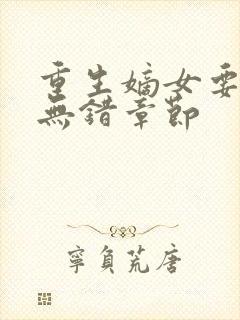 重生嫡女要
無錯章節
寧負荒唐